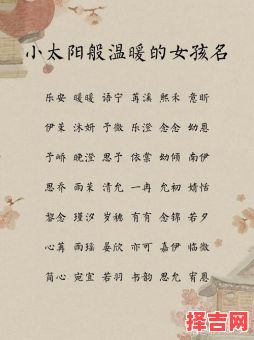 小太阳般温暖的女孩名
乐安 暖暖 语宁 苒溪 熙禾 意昕
伊茉 沐妍 予微 乐滢 念念 幼恩
于峤 晚澄 思予 依棠 幼倾 南伊
思乔 雨茉 清允 一冉 允初 婧恬
黎念 瑾汐 岁穗 有有 念锦 若夕
心苒 雨瑶 晏欣 亦可 嘉伊 临微
简心 宛宜 若羽 书韵 思允 宥恩
择吉网